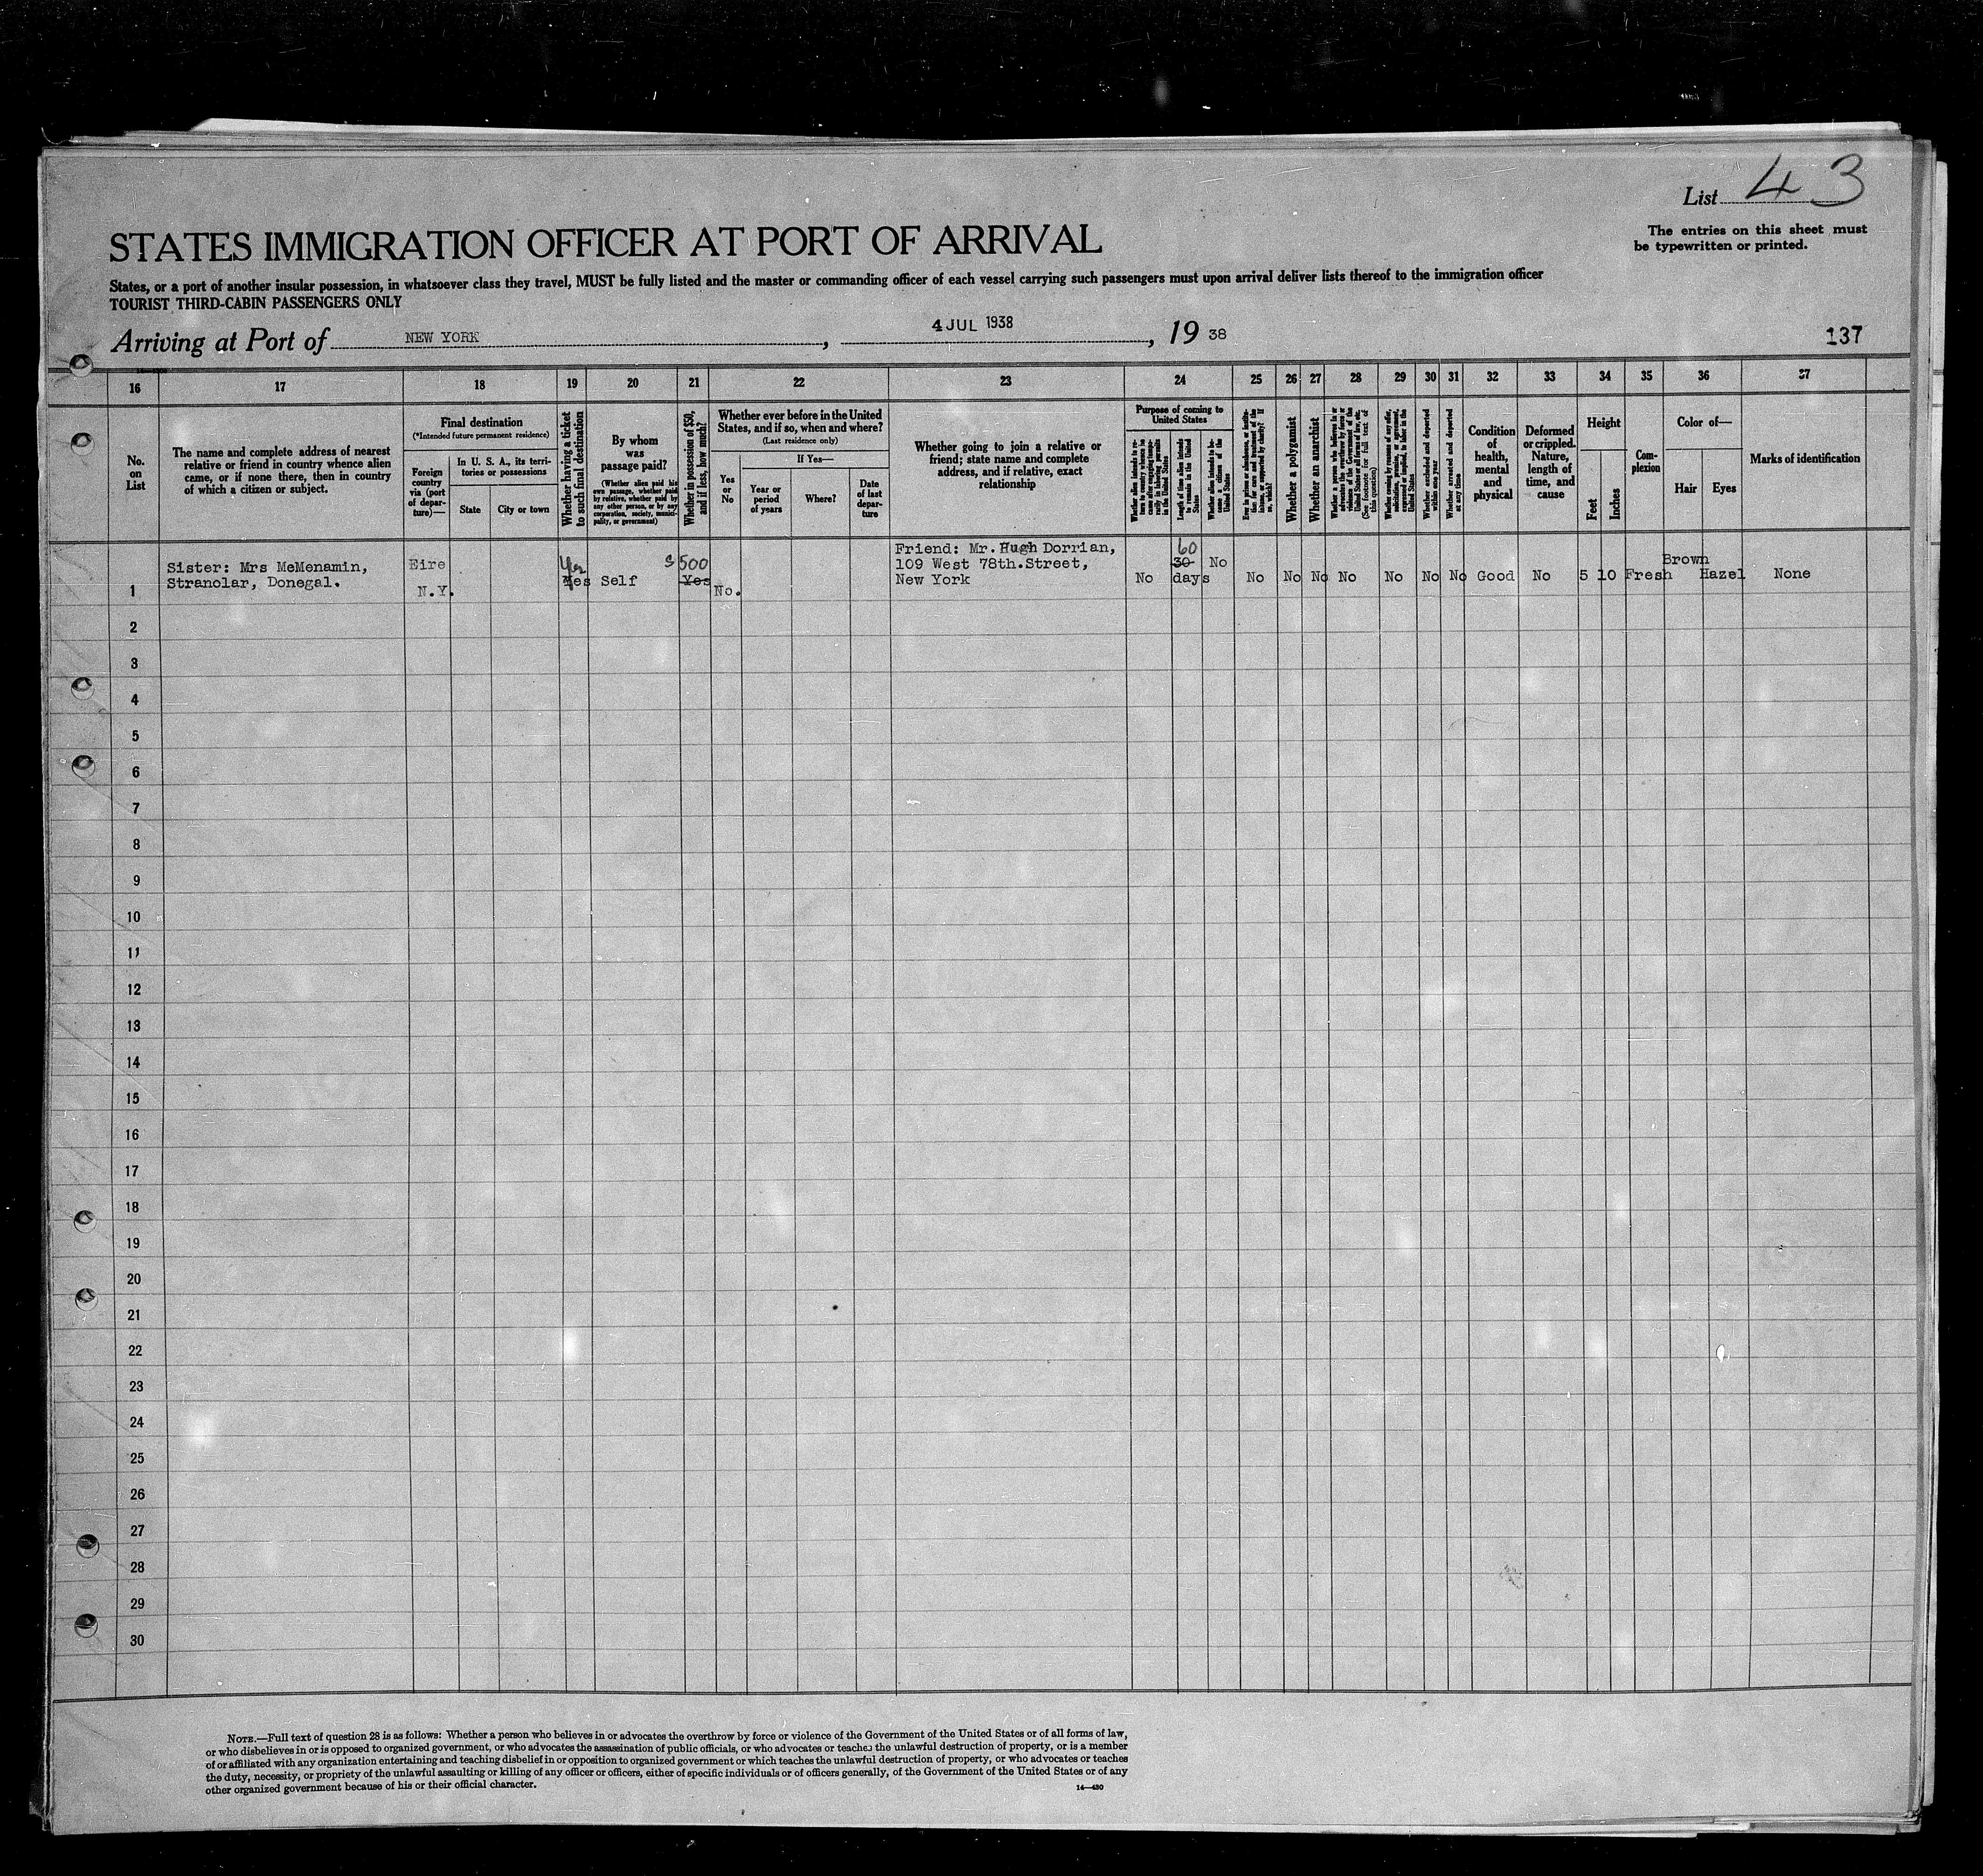 List 43
The entries on this sheet must
be typewritten or printed.
STATES IMMIGRATION OFFICER AT PORT OF ARRIVAL
States, or a port of another insular possession, in whatsoever class they travel, MUST be fully listed and the master or commanding officer of each vessel carrying such passengers must upon arrival deliver lists thereof to the immigration officer
TOURIST THIRD-CABIN PASSENGERS ONLY
Arriving at Port of NEW YORK, 4 JUL 1938, 19 38
137
16 17 18 19 20 21 22 23 24 25 26 27 28 29 30 31 32 33 34 35 36 37
No.
on
List
The name and complete address of nearest
relative or friend in country whence alien
came, or if none there, then in country
of which a citizen or subject.
Final destination
(*Intended future permanent residence)
Foreign
country
via (port
of depar-
ture)—
In U. S. A., its terri-
tories or possessions
State
City or town
Whether having a ticket
to such final destination
By whom
was
passage paid?
(Whether alien paid his
own passage, whether paid
by relative, whether paid by
any other person, or by any
corporation, society, munici-
pality, or government)
Whether in possession of $50,
and if less, how much?
Whether ever before in the United
States, and if so, when and where?
(Last residence only)
If Yes—
Yes
or
No
Year or
period
of years
Where?
Date
of last
depar-
ture
Whether going to join a relative or
friend; state name and complete
address, and if relative, exact
relationship
Purpose of coming to
United States
Whether alien intends to re-
turn to country whence he
came after engaging tempo-
rarily in laboring pursuits
in the United States
Length of time alien intends
to remain in the United
States
Whether alien intends to be-
come a citizen of the
United States
Ever in prison or almshouse, or institu-
tion for care and treatment of the
insane, or supported by charity? If
so, which?
Whether a polygamist
Whether an anarchist
Whether a person who believes in or
advocates the overthrow by force or
violence of the Government of the
United States or all forms of law, etc.
(See footnote for full text of
this question)
Whether coming by reason of any offer,
solicitation, promise, or agreement,
expressed or implied, to labor in the
United States
Whether excluded and deported
within one year
Whether arrested and deported
at any time
Condition
of
health,
mental
and
physical
Deformed
or crippled.
Nature,
length of
time, and
cause
Height
Feet
Inches
Com-
plexion
Color of—
Hair
Eyes
Marks of identification
1
Sister: Mrs McMenamin,
Stranolar, Donegal.
Eire
N.Y.
Yes
Yes
Self
$500
Yes
No.
Friend: Mr. Hugh Dorrian,
109 West 78th.Street,
New York
No
60
30
days
No
No No No No No No No Good No 5 10 Fresh Brown Hazel None
2
3
4
5
6
7
8
9
10
11
12
13
14
15
16
17
18
19
20
21
22
23
24
25
26
27
28
29
30
NOTE.—Full text of question 28 is as follows: Whether a person who believes in or advocates the overthrow by force or violence of the Government of the United States or of all forms of law,
or who disbelieves in or is opposed to organized government, or who advocates the assassination of public officials, or who advocates or teaches the unlawful destruction of property, or is a member
of or affiliated with any organization entertaining and teaching disbelief in or opposition to organized government or which teaches the unlawful destruction of property, or who advocates or teaches
the duty, necessity, or propriety of the unlawful assaulting or killing of any officer or officers, either of specific individuals or of officers generally, of the Government of the United States or of any
other organized government because of his or their official character.
14—430